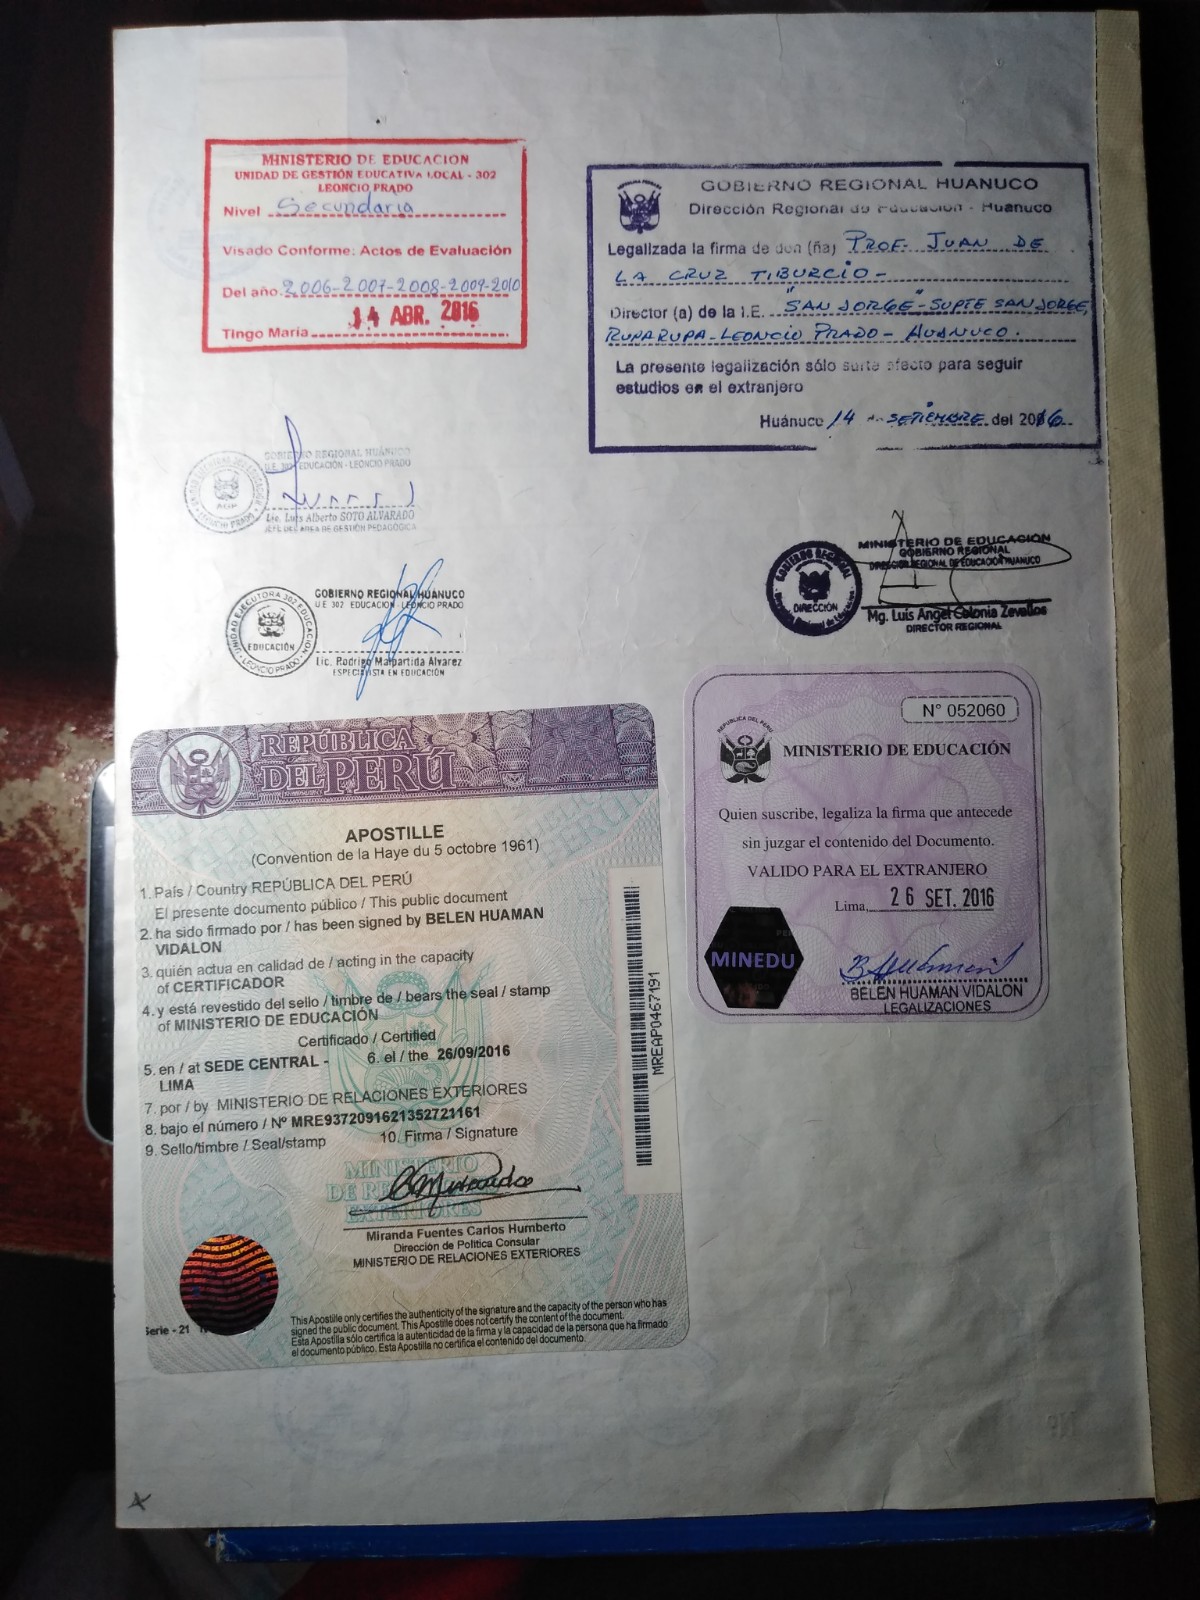 MINISTERIO DE EDUCACION
UNIDAD DE GESTIÓN EDUCATIVA LOCAL - 302
LEONCIO PRADO
Nivel Secundaria
Visado Conforme: Actos de Evaluación
Del año 2006-2007-2008-2009-2010
14 ABR. 2016
Tingo María
GOBIERNO REGIONAL HUANUCO
Dirección Regional de Educación - Huanuco
Legalizada la firma de don (ña) PROF. JUAN DE
LA CRUZ TIBURCIO -
Director (a) de la I.E. "SAN JORGE"-SUPTE SAN JORGE,
RUPARUPA-LEONCIO PRADO- HUANUCO.
La presente legalización sólo surte efecto para seguir
estudios en el extranjero
Huánuco 14 de SETIEMBRE del 2016
GOBIERNO REGIONAL HUÁNUCO
U.E. 302 EDUCACIÓN - LEONCIO PRADO
AGP
Lic. Luis Alberto SOTO ALVARADO
JEFE DEL AREA DE GESTIÓN PEDAGÓGICA
UNIDAD EJECUTORA 302 EDUCACIÓN
EDUCACIÓN
LEONCIO PRADO
GOBIERNO REGIONAL HUÁNUCO
U.E 302 EDUCACION - LEONCIO PRADO
Lic. Rodrigo Malpartida Alvarez
ESPECIALISTA EN EDUCACIÓN
GOBIERNO REGIONAL
DIRECCIÓN
Dirección Regional de Educación
MINISTERIO DE EDUCACIÓN
GOBIERNO REGIONAL
DIRECCIÓN REGIONAL DE EDUCACIÓN HUANUCO
Mg. Luis Angel Colonia Zevallos
DIRECTOR REGIONAL
REPÚBLICA
DEL PERÚ
APOSTILLE
(Convention de la Haye du 5 octobre 1961)
1. País / Country REPÚBLICA DEL PERÚ
El presente documento público / This public document
2. ha sido firmado por / has been signed by BELEN HUAMAN
VIDALON
3. quién actua en calidad de / acting in the capacity
of CERTIFICADOR
4. y está revestido del sello / timbre de / bears the seal / stamp
of MINISTERIO DE EDUCACIÓN
Certificado / Certified
5. en / at SEDE CENTRAL - 6. el / the 26/09/2016
LIMA
7. por / by MINISTERIO DE RELACIONES EXTERIORES
8. bajo el número / Nº MRE9372091621352721161
9. Sello/timbre / Seal/stamp 10. Firma / Signature
MINISTERIO
DE RELACIONES
EXTERIORES
Miranda Fuentes Carlos Humberto
Dirección de Política Consular
MINISTERIO DE RELACIONES EXTERIORES
Serie - 21
This Apostille only certifies the authenticity of the signature and the capacity of the person who has
signed the public document. This Apostille does not certify the content of the document.
Esta Apostilla sólo certifica la autenticidad de la firma y la capacidad de la persona que ha firmado
el documento público. Esta Apostilla no certifica el contenido del documento.
MREAP0467191
N° 052060
REPUBLICA DEL PERU
MINISTERIO DE EDUCACIÓN
Quien suscribe, legaliza la firma que antecede
sin juzgar el contenido del Documento.
VALIDO PARA EL EXTRANJERO
Lima, 26 SET. 2016
MINEDU
BELEN HUAMAN VIDALON
LEGALIZACIONES